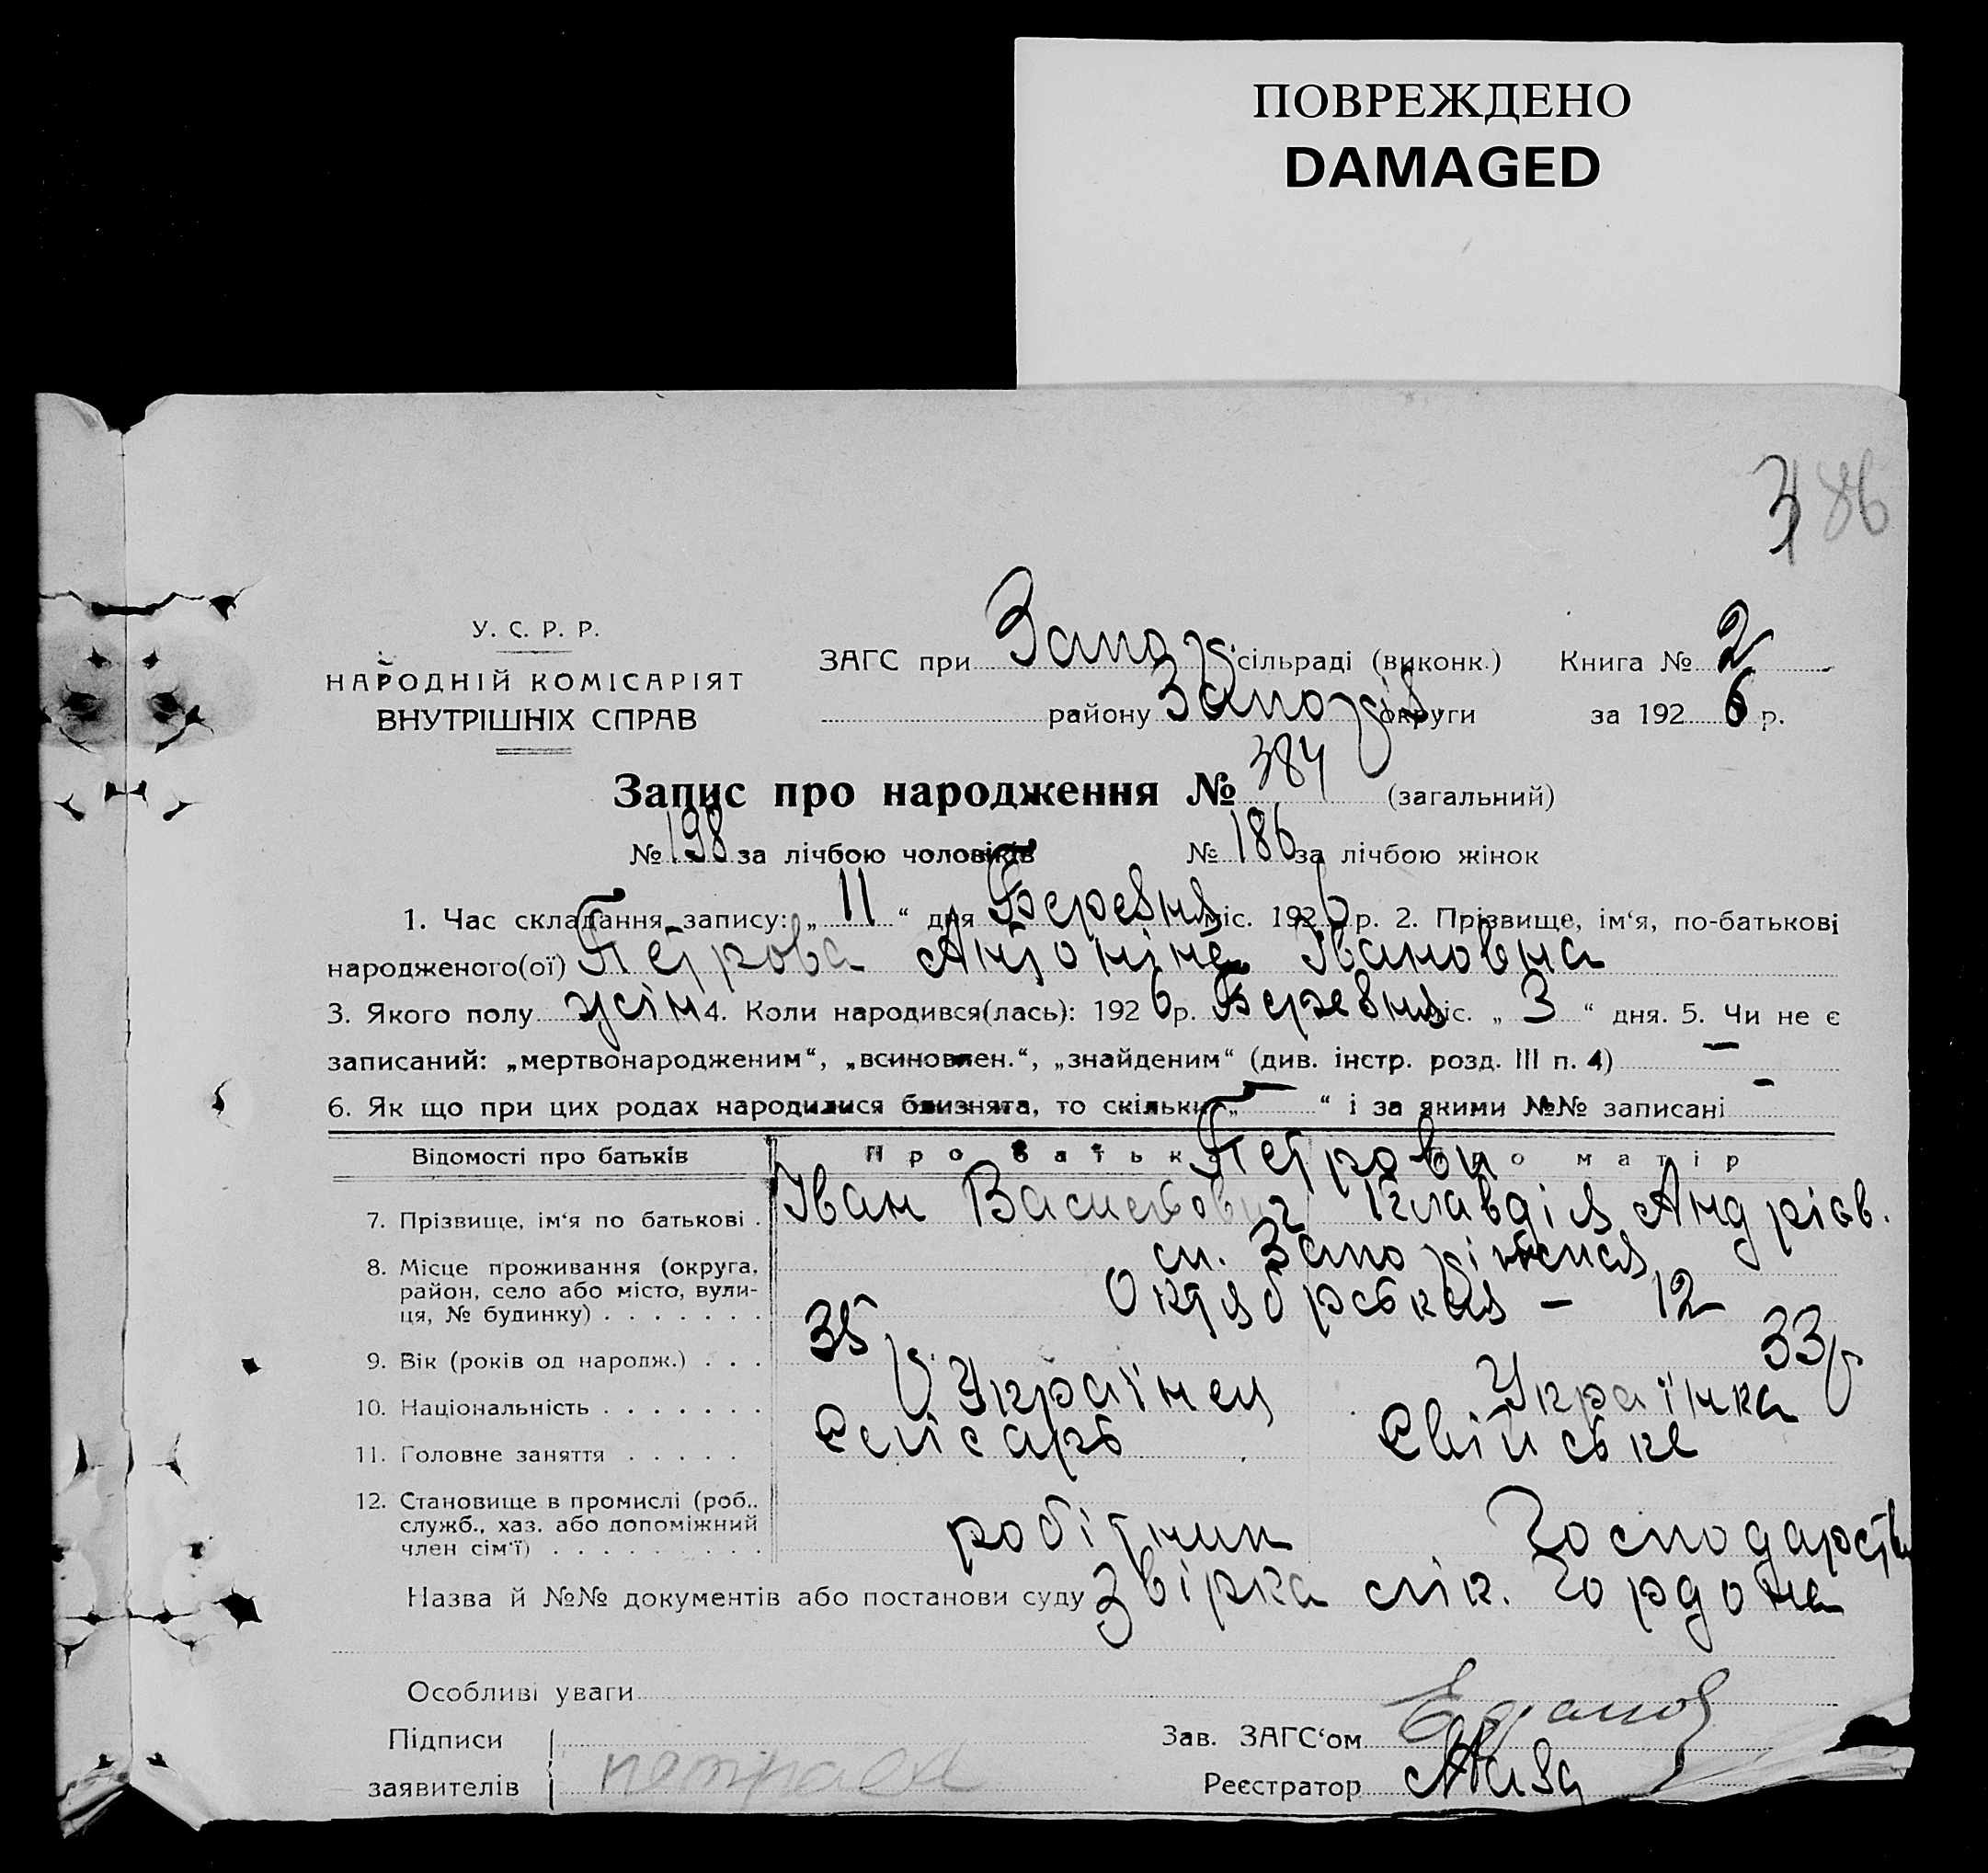 ПОВРЕЖДЕНО
DAMAGED
3 86
У. С. Р. Р.
НАРОДНІЙ КОМІСАРІЯТ
ВНУТРІШНІХ СПРАВ
ЗАГС при Запор. сільраді (виконк.) Книга № 2
району Запоріз. округи за 192 6 р.
Запис про народження № 384 (загальний)
№ 198 за лічбою чоловіків № 186 за лічбою жінок
1. Час складання запису: „ 11 “ дня Березня міс. 192 6 р. 2. Прізвище, ім‘я, по-батькові
народженого(ої) Петрова Антоніна Івановна
3. Якого полу жін 4. Коли народився(лась): 192 6 р. Березня міс. „ 3 “ дня. 5. Чи не є
записаний: „мертвонародженим“, „всиновлен.“, „знайденим“ (див. інстр. розд. III п. 4) —
6. Як що при цих родах народилися близнята, то скільки „ — “ і за якими №№ записані —
Відомості про батьків Про батька Петрови Про матір
7. Прізвище, ім‘я по батькові . Іван Васильович Клавдія Андріев.
8. Місце проживання (округа, район, село або місто, вулиця, № будинку) . . . . . . . м. Запоріжжя
Октябрськая — 12
9. Вік (років од народж.) . . . 35 р. 33 р
10. Національність . . . . . . . Українец Українка
11. Головне заняття . . . . . Слісарь Свійське
12. Становище в промислі (роб., служб., хаз. або допоміжний член сім‘ї) . . . . . . . . . робітник Господарств
Назва й №№ документів або постанови суду Звірка лік. Гордона
Особливі уваги
Підписи
заявителів
Зав. ЗАГС‘ом
Реєстратор